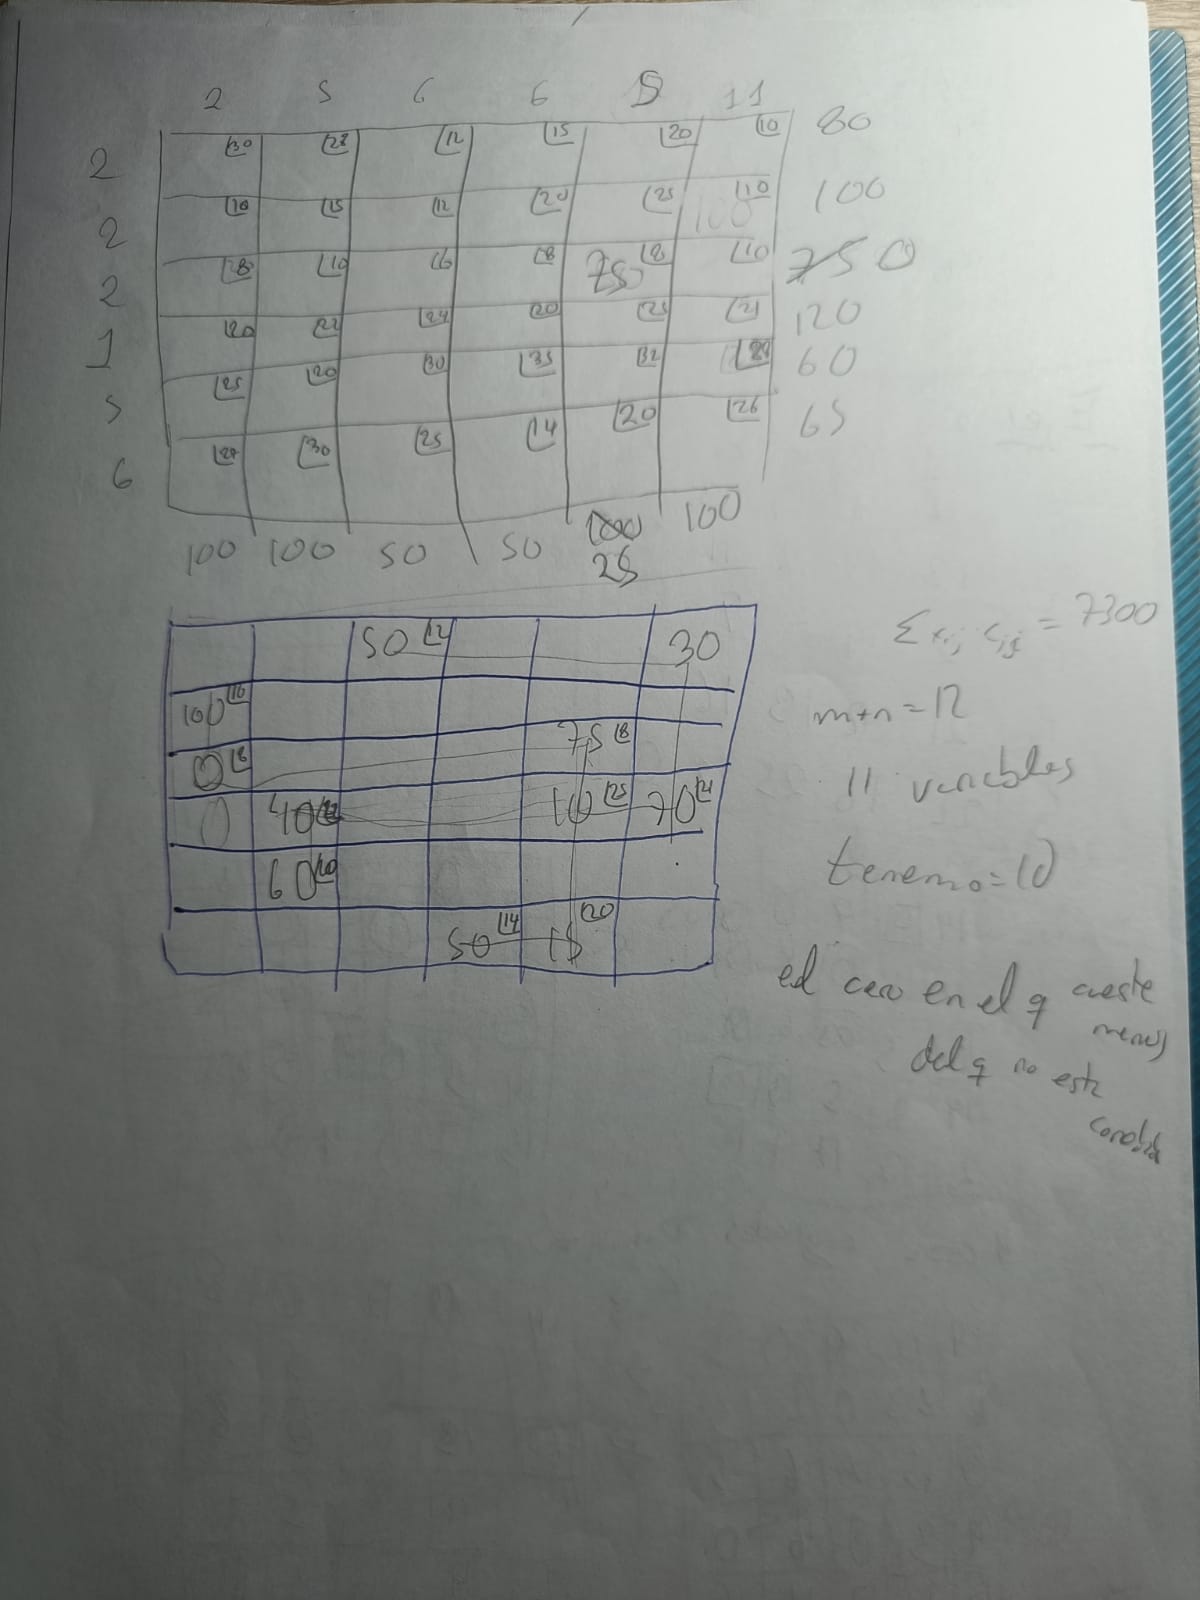 2 5 6 6 5 11
2 30 28 12 15 20 10 80
2 10 15 12 20 25 10 100 100
2 10 6 8 75 0 8 10 75 0
1 20 22 24 20 25 21 120
5 25 20 30 35 32 60
6 30 25 14 20 26 65
100 100 50 50 100 100
25
50 12 30
100 10
0 8 75 8
0 40 22 10 25 70 21
60 20
50 14 15 20
Σ xij cij = 7300
m+n=12
11 variables
tenemo=10
el cero en el q cueste
menos
del q no este